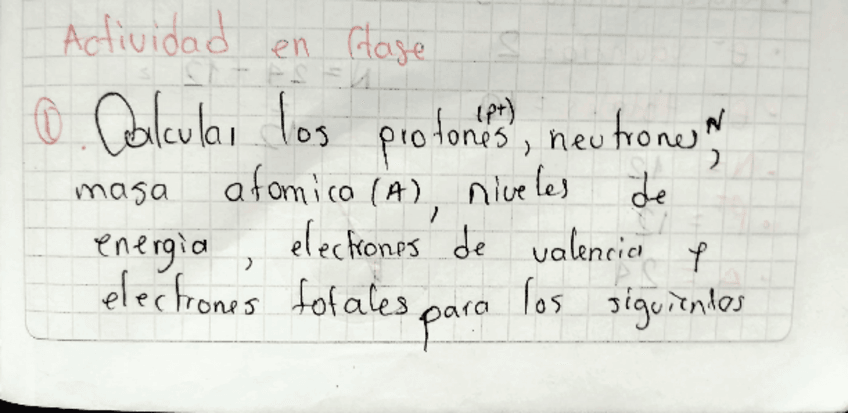 Actividad en Clase
① Calcular los protones (p+), neutrones N,
masa atomica (A), niveles de
energia, electrones de valencia y
electrones totales para los siguientes